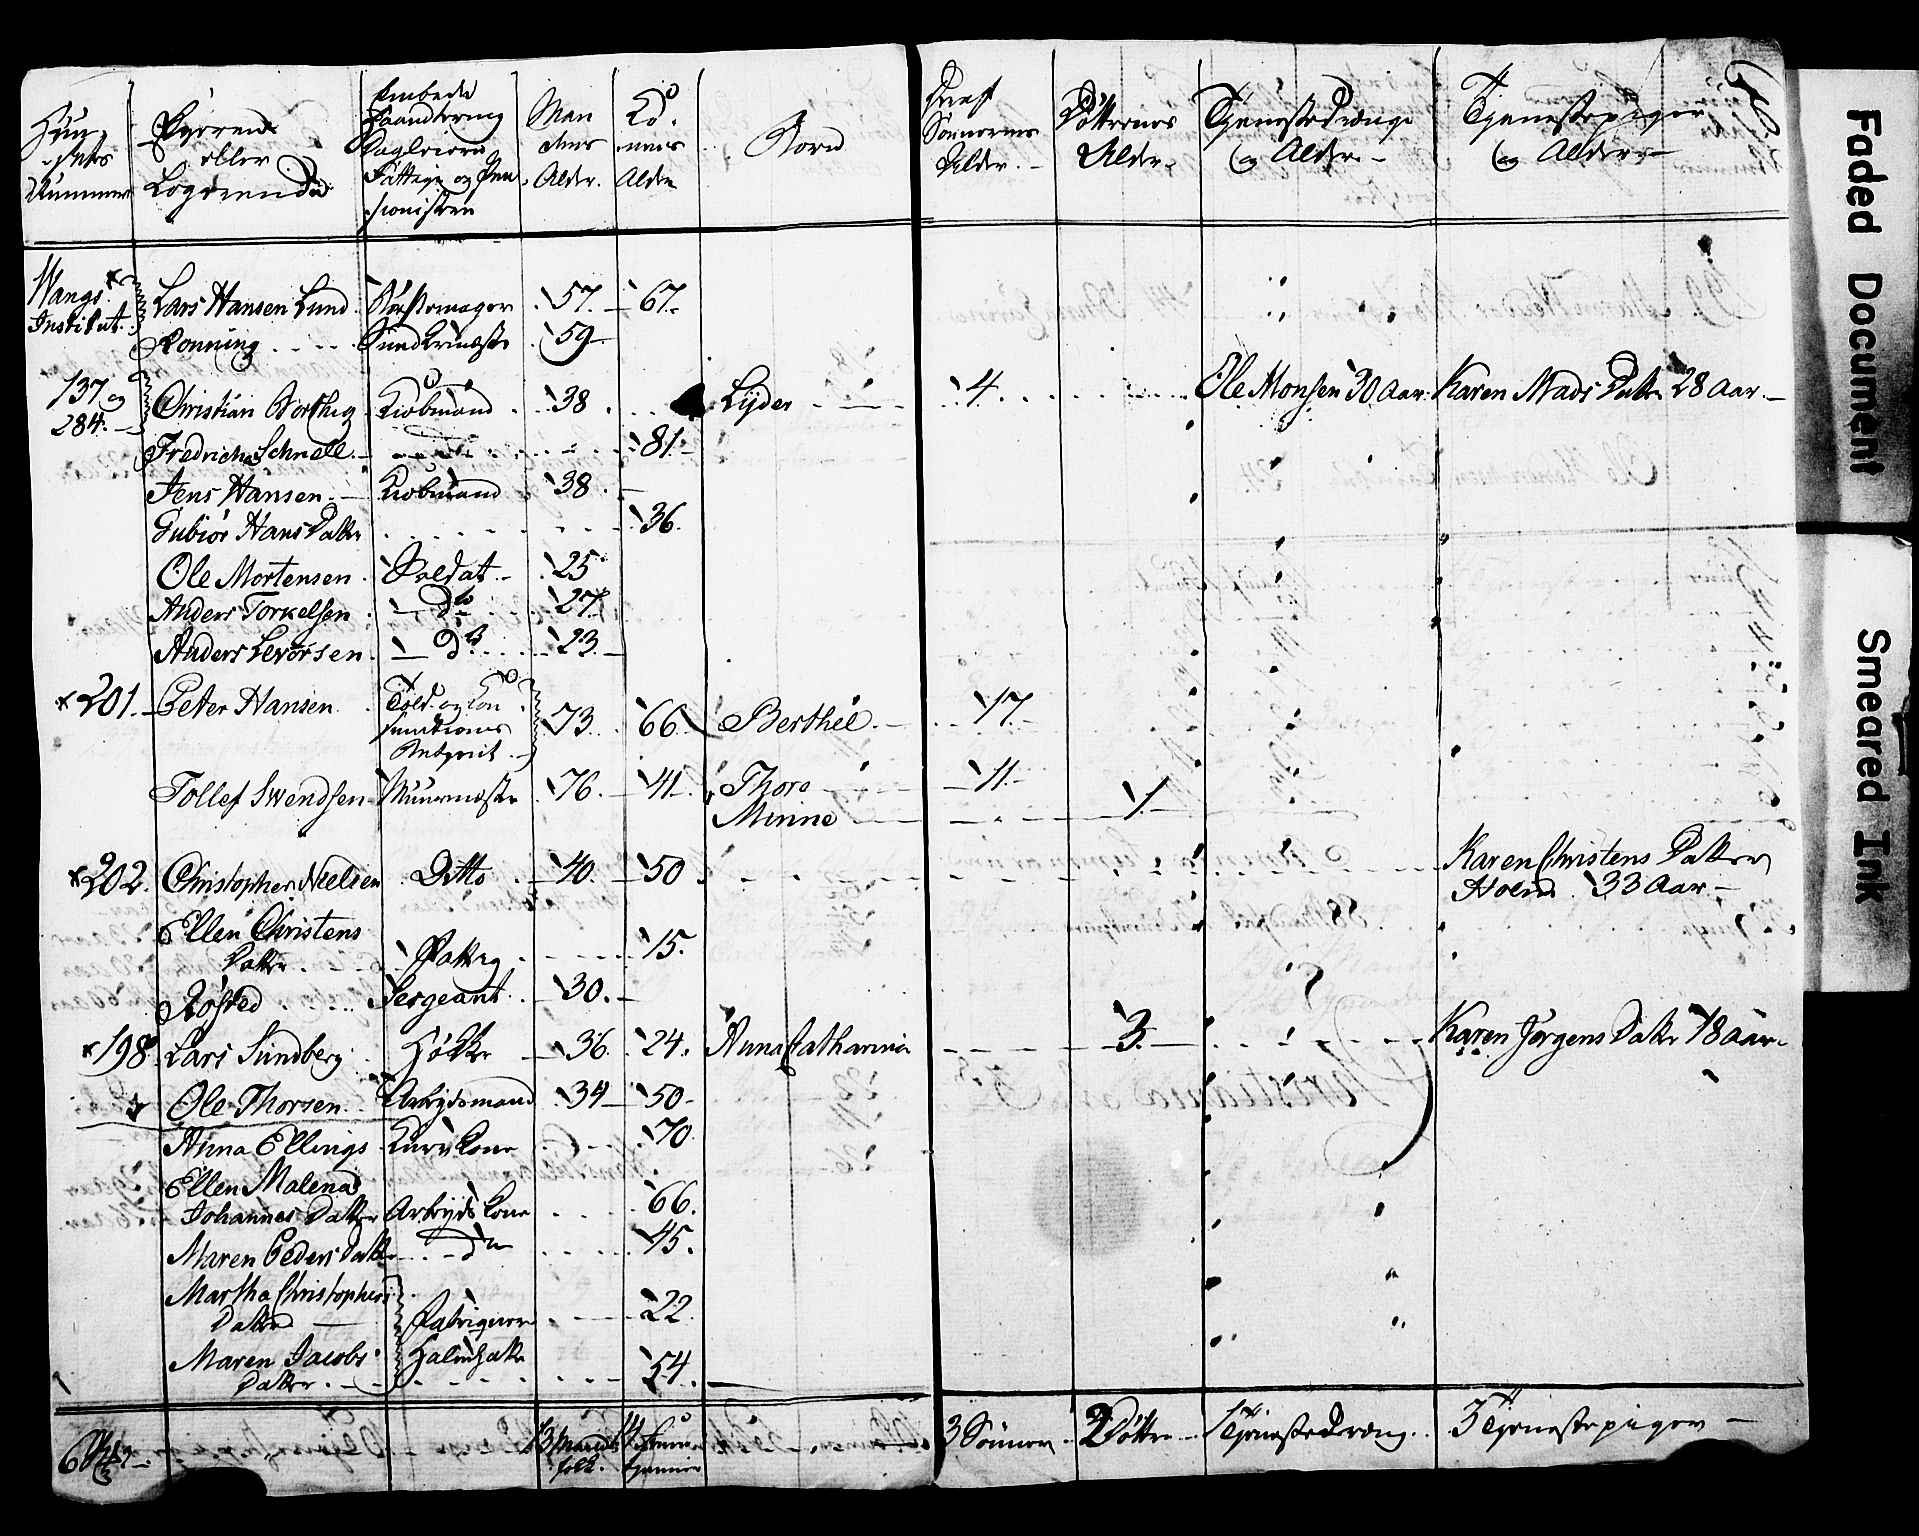 Huu-
sets
Nummer
Eyeren
eller
Logerende
Embede
Haandtering
Daglejere
Fattige og Pen
sionisten
Man
dens
Alder.
Ko-
nens
Alder
Børn
Sønnernes
Alder.
Døttrenes
Alder.
Tjenestedrænge
og Alder
Tjenestepiger
og Alder
Wangs
Institut.
Lars Hansen Lund 57. 67.
Rønning 59
137 og
284.
Christian Kiøbmand 38 Lyder 4. Ole Monsen 30 Aar Karen Mads Datter 28 Aar
Fredrich Schnell 81.
Jens Hansen Kiøbmand 38
Hans Datter 36.
Ole Mortensen Soldat 25
Anders Torkelsen do 27
Anders Leversen do 23
201. Peter Hansen Told og Con
sumtions
Betient 73. 66 Berthel 17
Tollef Swendsen Muurmester 76. 41. Thore 11
Minne 1
202. Christopher Nielsen Ditto 40. 50 Karen Christens Datter
Holm 33 Aar
Ellen Christens
Datter 15.
Sergeant 30.
198 Lars Sundberg Høkker 36. 24. Anna Catharina 3. Karen Jørgens Datter 18 Aar
Ole Thorsen Arbejdsmand 34 50
Anna Ellings Kone 70
Ellen Malena
Johannes Datter Arbejds Kone 66.
Maren Peders Datter do 45.
Martha Christophers
Datter 22
Maren Jacobs
Datter 54
13 Mand
folk.
3 Sønner 2 Døttre 1 Tjenestedræng 3 Tjenestepiger
Faded Document
Smeared Ink